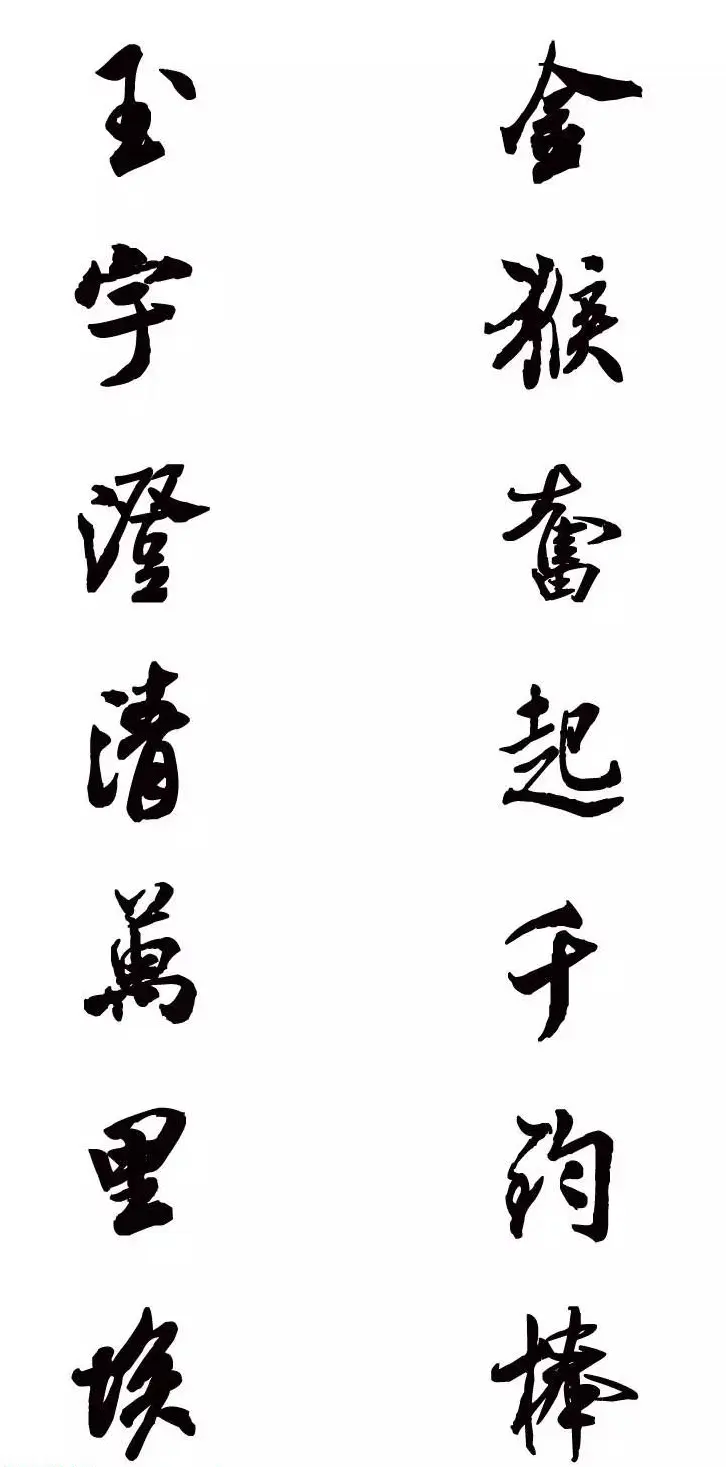 金猴奮起千鈞棒
玉宇澄清萬里埃